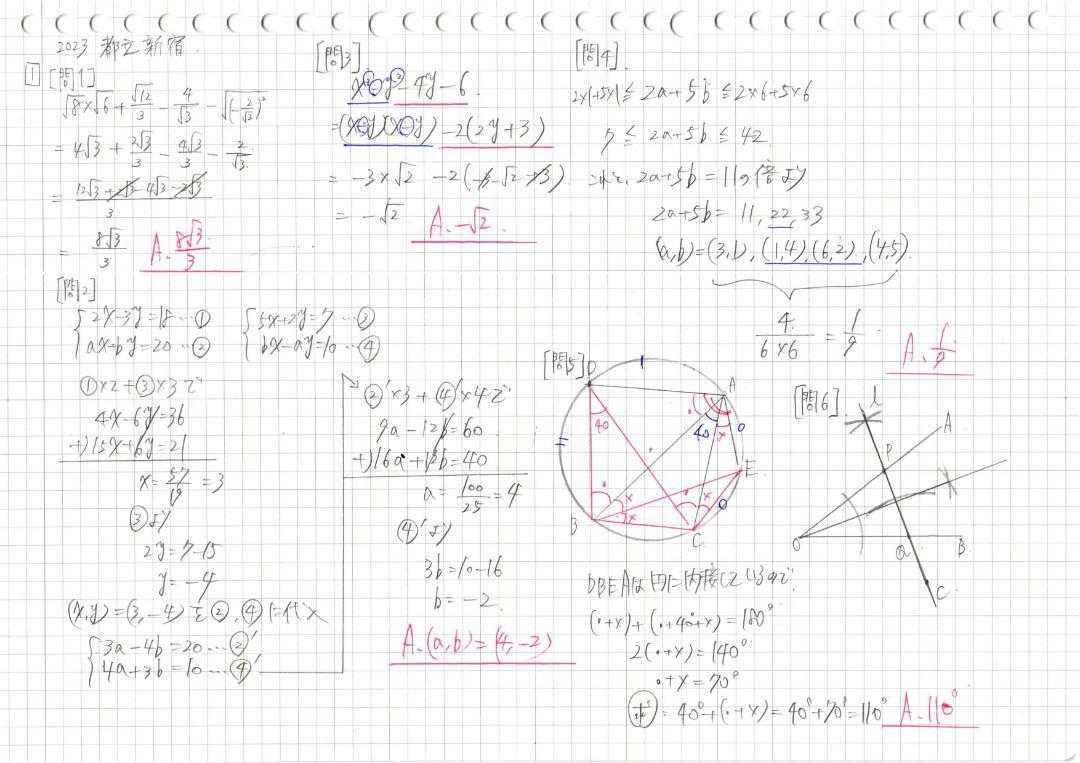 2023 都立新宿.
1 [問1]
√8×√6+√12/3-4/√3-√(-2/√3)²
=4√3+2√3/3-4√3/3-2/√3
=12√3+2√3-4√3-2√3/3
=8√3/3 A.8√3/3
[問2]
2x-3y=18…①
ax+by=20…②
5x+2y=7…③
bx-ay=10…④
①×2+③×3で
4x-6y=36
+)15x+6y=21
x=57/19=3
③より
2y=7-15
y=-4
(x,y)=(3,-4)を②,④に代入
3a-4b=20…②'
4a+3b=10…④'
②'×3+④'×4で
9a-12b=60
+)16a+12b=40
a=100/25=4
④'より
3b=10-16
b=-2
A.(a,b)=(4,-2)
[問3]
x²-y²-4y-6
=(x+y)(x-y)-2(2y+3)
=-3×√2-2(-3-√2+3)
=-√2 A.-√2
[問4]
2×1+5×1≦2a+5b≦2×6+5×6
7≦2a+5b≦42
2a+5b=11の倍より
2a+5b=11,22,33
(a,b)=(3,1),(1,4),(6,2),(4,5)
4/6×6=1/9 A.1/9
[問5]
D
A
40
40
x
E
B
x
x
C
DBEAは円に内接しているので
(・+x)+(・+40+x)=180°
2(・+x)=140°
・+x=70°
求=40°+(・+x)=40°+70°=110° A.110°
[問6]
l
A
P
O
Q
B
C